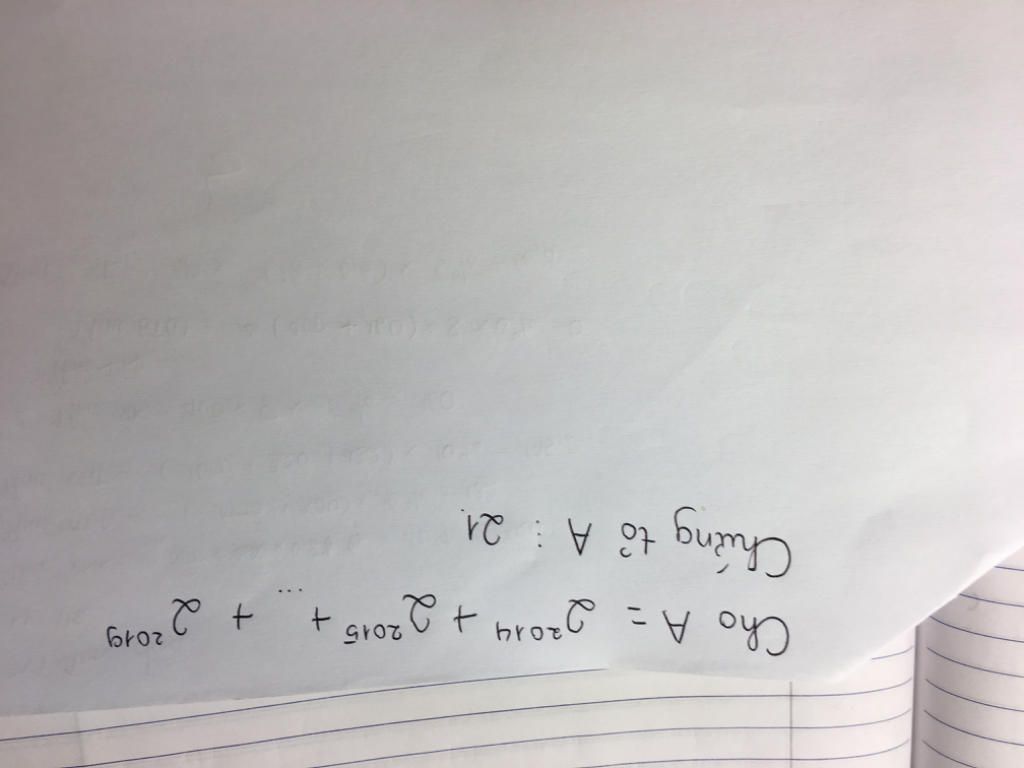 Cho A = 2²⁰¹⁴ + 2²⁰¹⁵ + ... + 2²⁰¹⁹
Chứng tỏ A ⋮ 21.